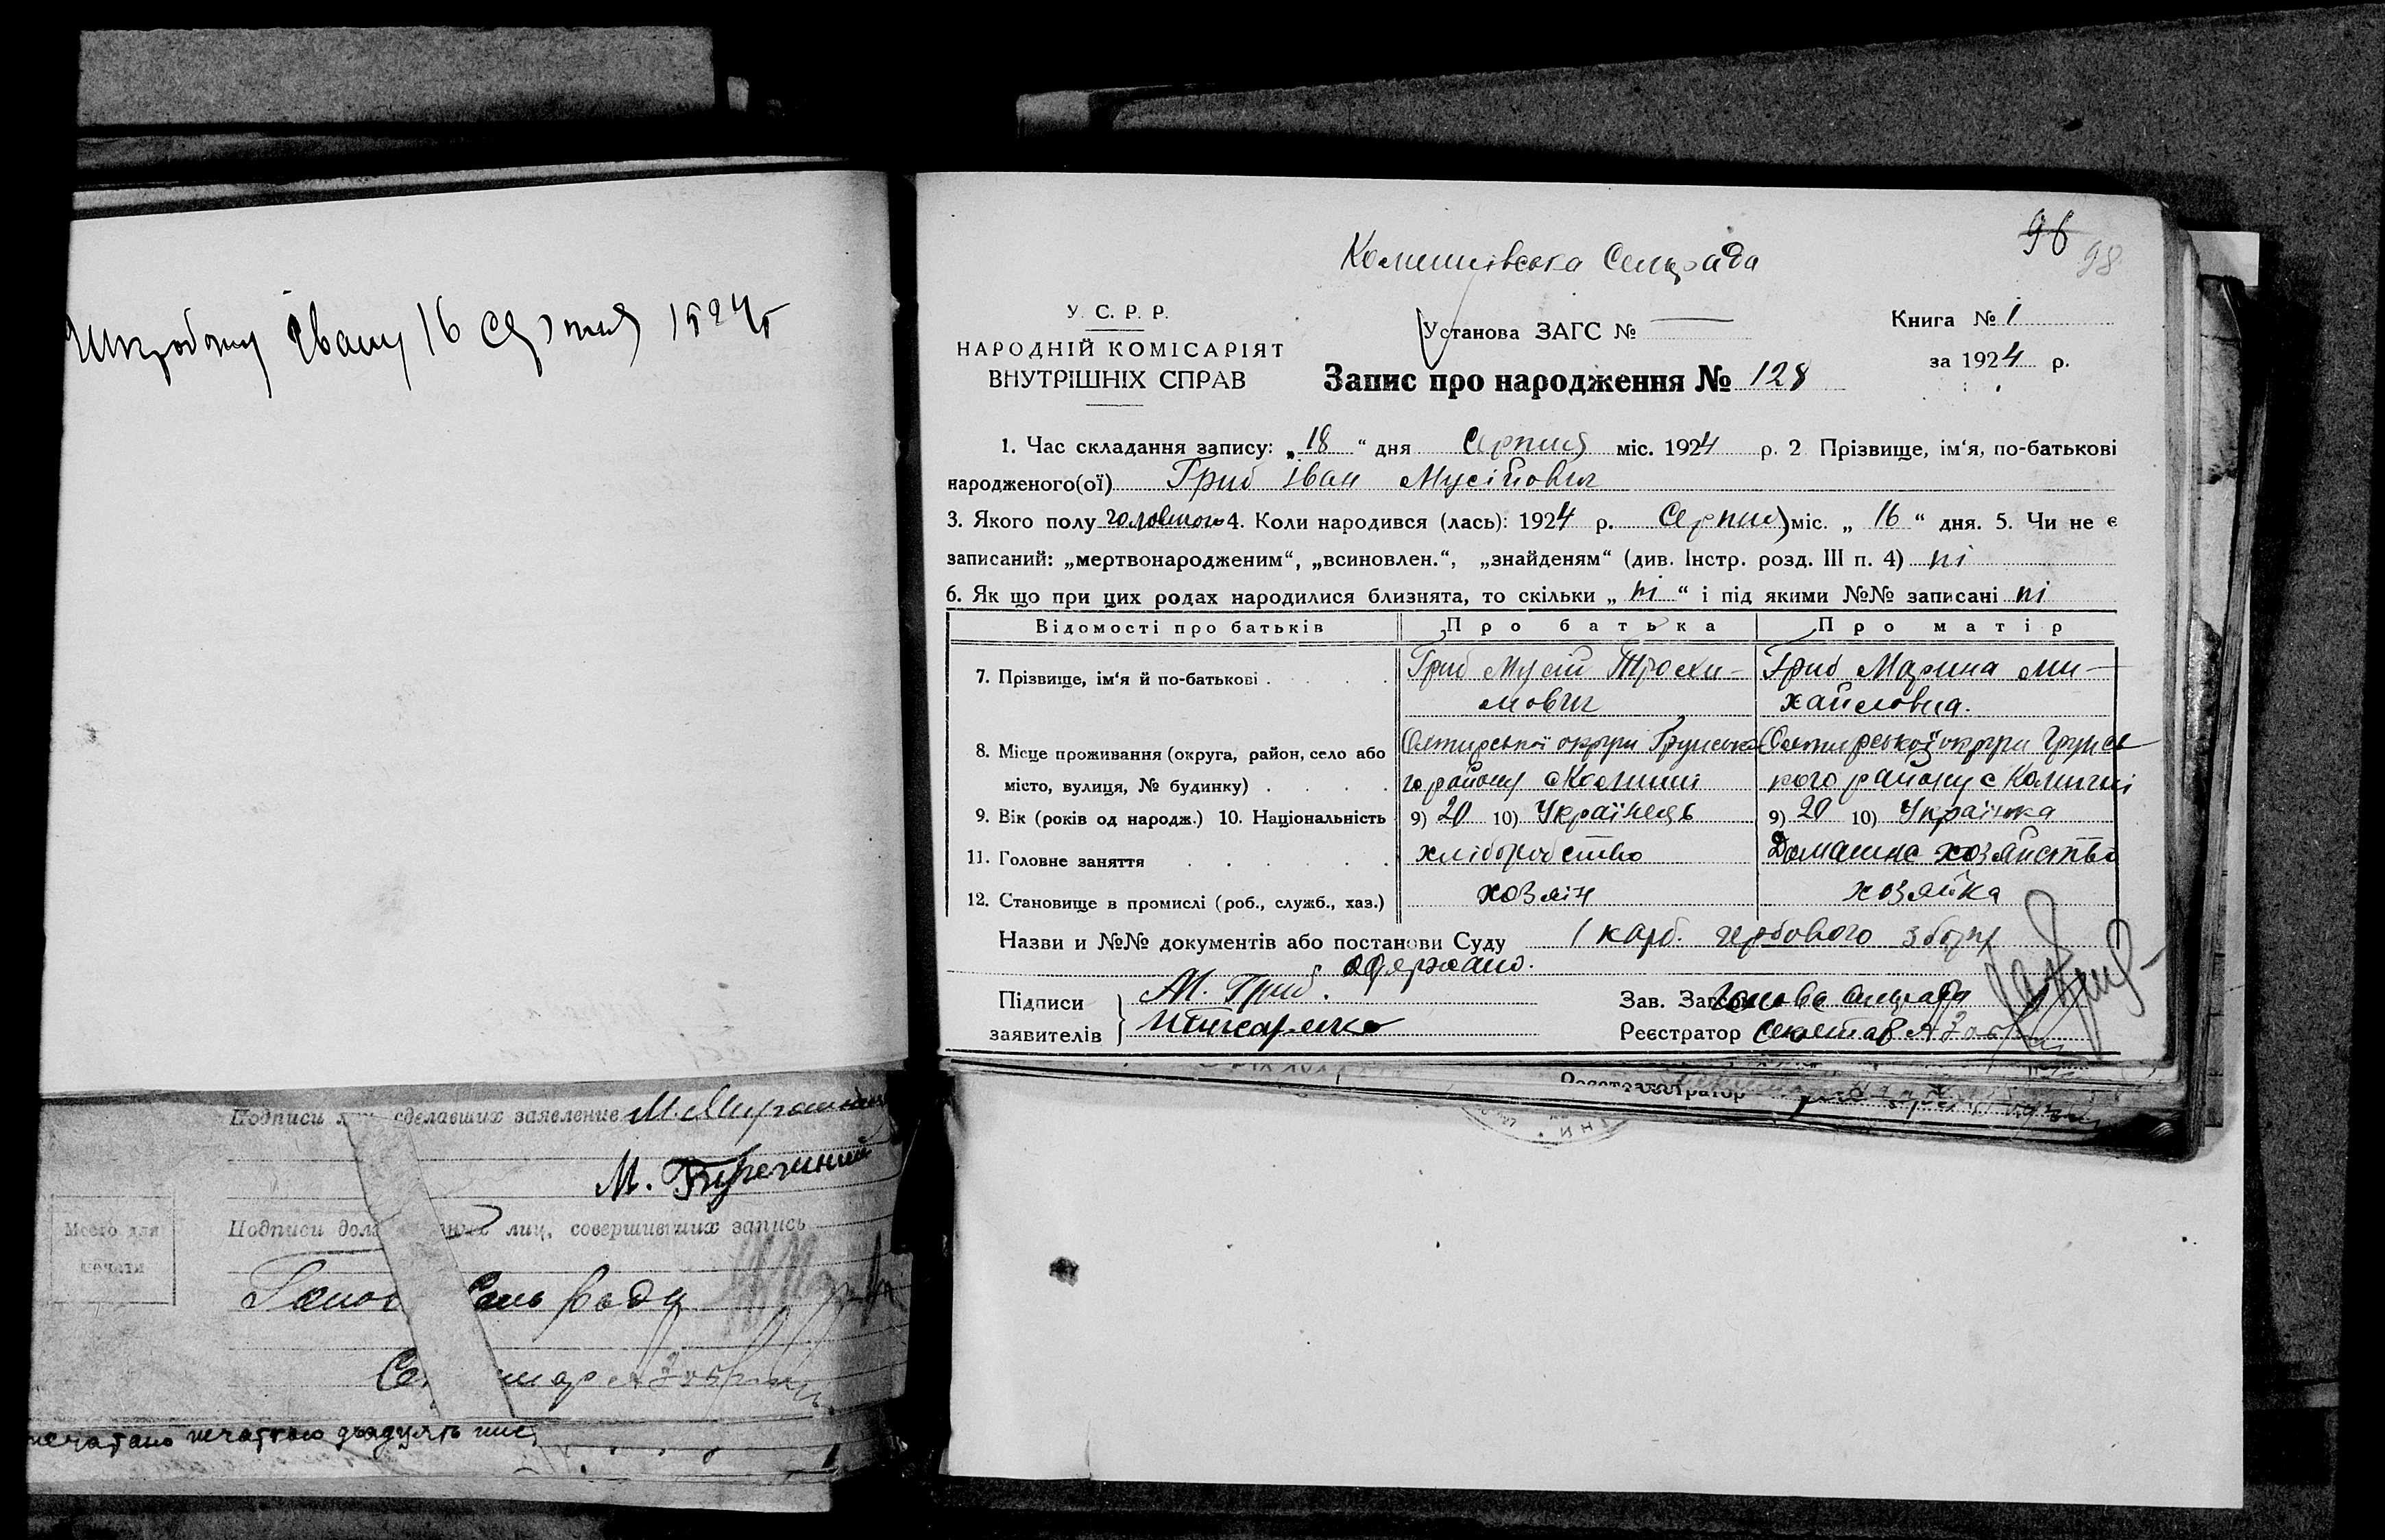 Івану 16 Серпня 1924 г
Подписи сделавших заявление
М.
Подписи лиц, совершивших запись
Место для
печати
Голов Сель Ради
96 98
Комишівська Сельрада
У. С. Р. Р.
НАРОДНІЙ КОМІСАРІЯТ
ВНУТРІШНІХ СПРАВ
Установа ЗАГС №
Запис про народження № 128
Книга № 1
за 1924 р.
1. Час складання запису: „18“ дня Серпня міс. 1924 р. 2 Прізвище, ім‘я, по-батькові
народженого(ої) Гриб Іван Мусійович
3. Якого полу чоловічого 4. Коли народився (лась): 1924 р. Серпня міс. „ 16 “ дня. 5. Чи не є
записаний: „мертвонародженим“, „всиновлен.“, „знайденям“ (див. Інстр. розд. III п. 4) ні
6. Як що при цих родах народилися близнята, то скільки „ ні “ і під якими №№ записані ні
Відомості про батьків Про батька Про матір
7. Прізвище, ім‘я й по-батькові . Гриб Мусій Трохи- Гриб Марина Ми-
мович хайловна.
8. Місце проживання (округа, район, село або Охтирської округи Грунсько Охтирської округи Грунсь
місто, вулиця, № будинку) . го району с Комиші кого району с Комиші
9. Вік (років од народж.) 10. Національність 9) 20 10) Українець 9) 20 10) Українка
11. Головне заняття хліборобство Домашнє хозяйство
12. Становище в промислі (роб., служб., хаз.) хозяін хозяйка
Назви и №№ документів або постанови Суду 1 карб. гербового збору
одержано.
Підписи М. Гриб.
заявителів
Зав. Загсом Голова сільради
Реєстратор Секретар
Реєстратор